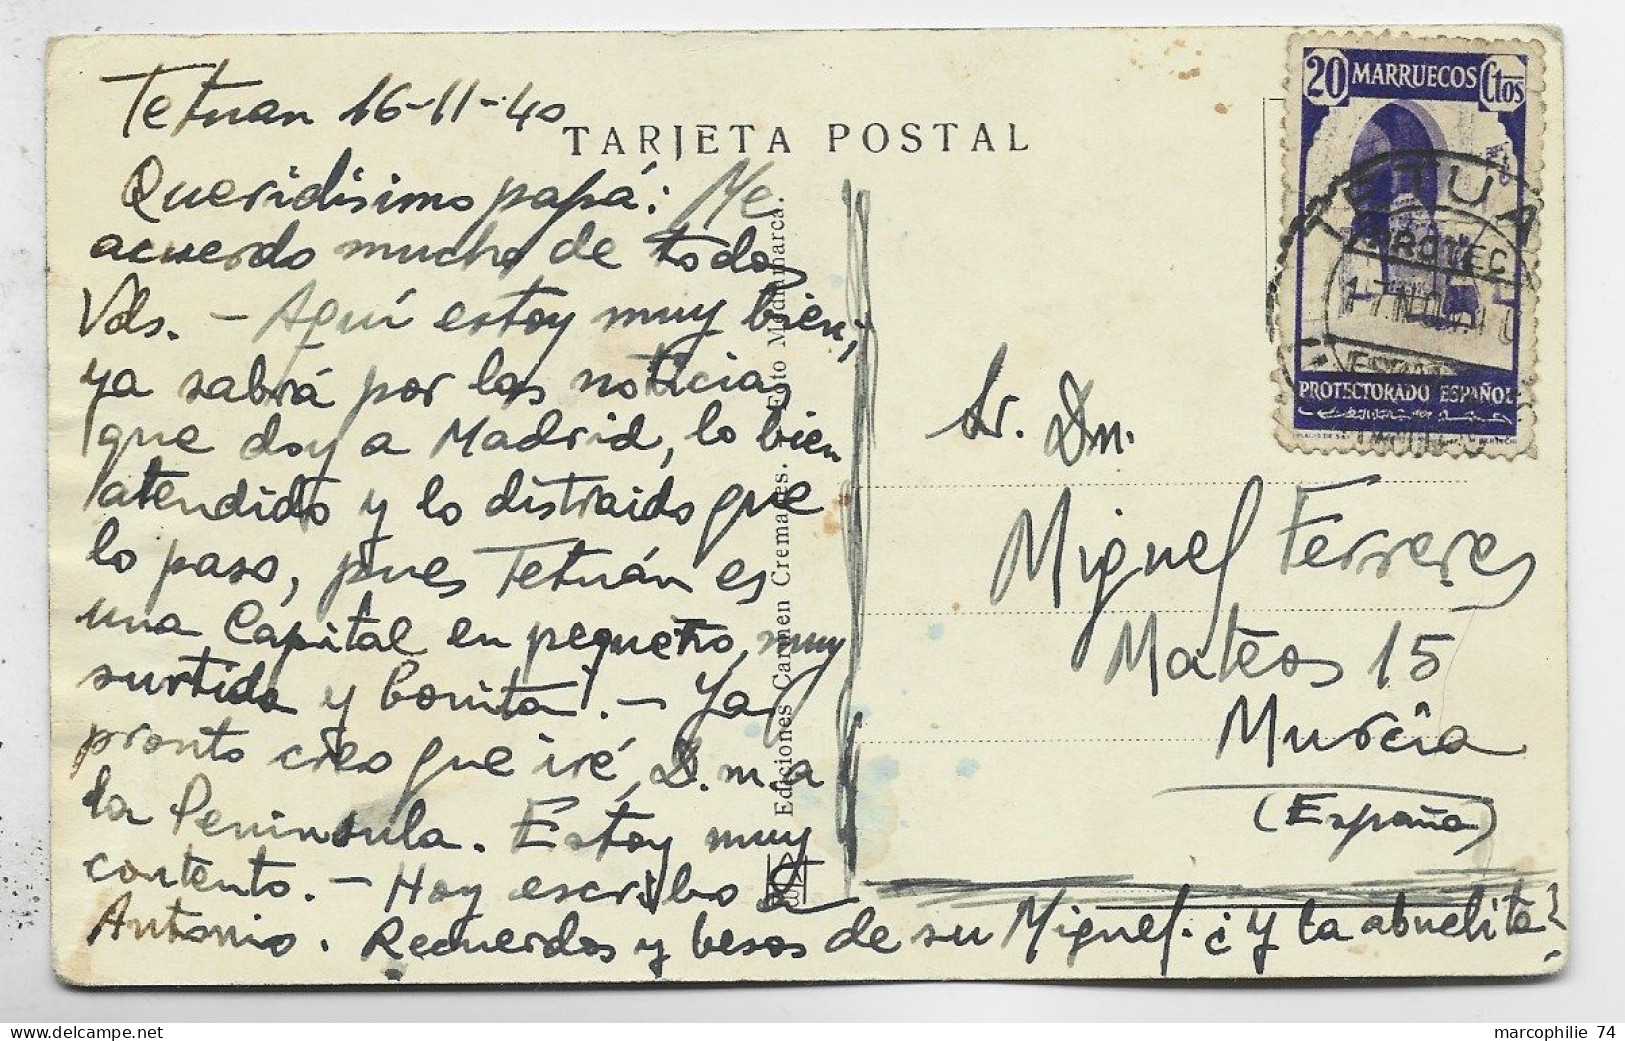 Tetuan 16-11-40
TARJETA POSTAL
Queridísimo papá: Me
acuerdo mucho de todos
Vds. - Aquí estoy muy bien,
ya sabrá por las noticias
que doy a Madrid, lo bien
atendido y lo distraido que
lo paso, pues Tetuán es
una Capital en pequeño, muy
surtida y bonita. - Ya
pronto creo que iré, D.m. a
la Península. Estoy muy
contento. - Hoy escribo a
Antonio. Recuerdos y besos de su Miguel. ¿Y la abuelita?
Ediciones Carmen Cremades. Foto
20 MARRUECOS Ctos
TETUA
PROTEC
17 NOV
PROTECTORADO ESPAÑOL
Sr. Dn.
Miguel Ferreres
Mateos 15
Murcia
(España)
marcophilie 74